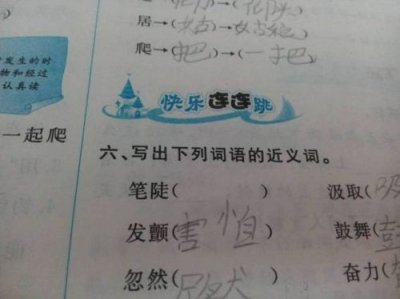 居→(
爬→(把)→(一把)
发生的时
物和经过
认真读
一起爬
快乐连连跳
六、写出下列词语的近义词。
笔陡( ) 汲取(吸
发颤(害怕) 鼓舞(鼓
忽然( 奋力(